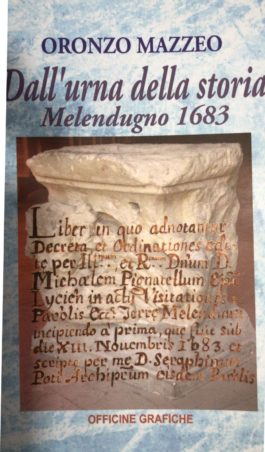 ORONZO MAZZEO
Dall'urna della storia
Melendugno 1683
Liber in quo adnotantur
Decreta, et Ordinationes edi-
te per Ill.mum et R.mum Dnum D.
Michaelem Pignatellum Ep̃m
Lycien in actu Visitationis
Parolis Ecc. Terre Melendunei
incipiendo a prima, que fuit sub
die XIII Nouembris 1683. et
scripte per me D. Seraphinum
Poti Archiprum eiusde Parolis
OFFICINE GRAFICHE